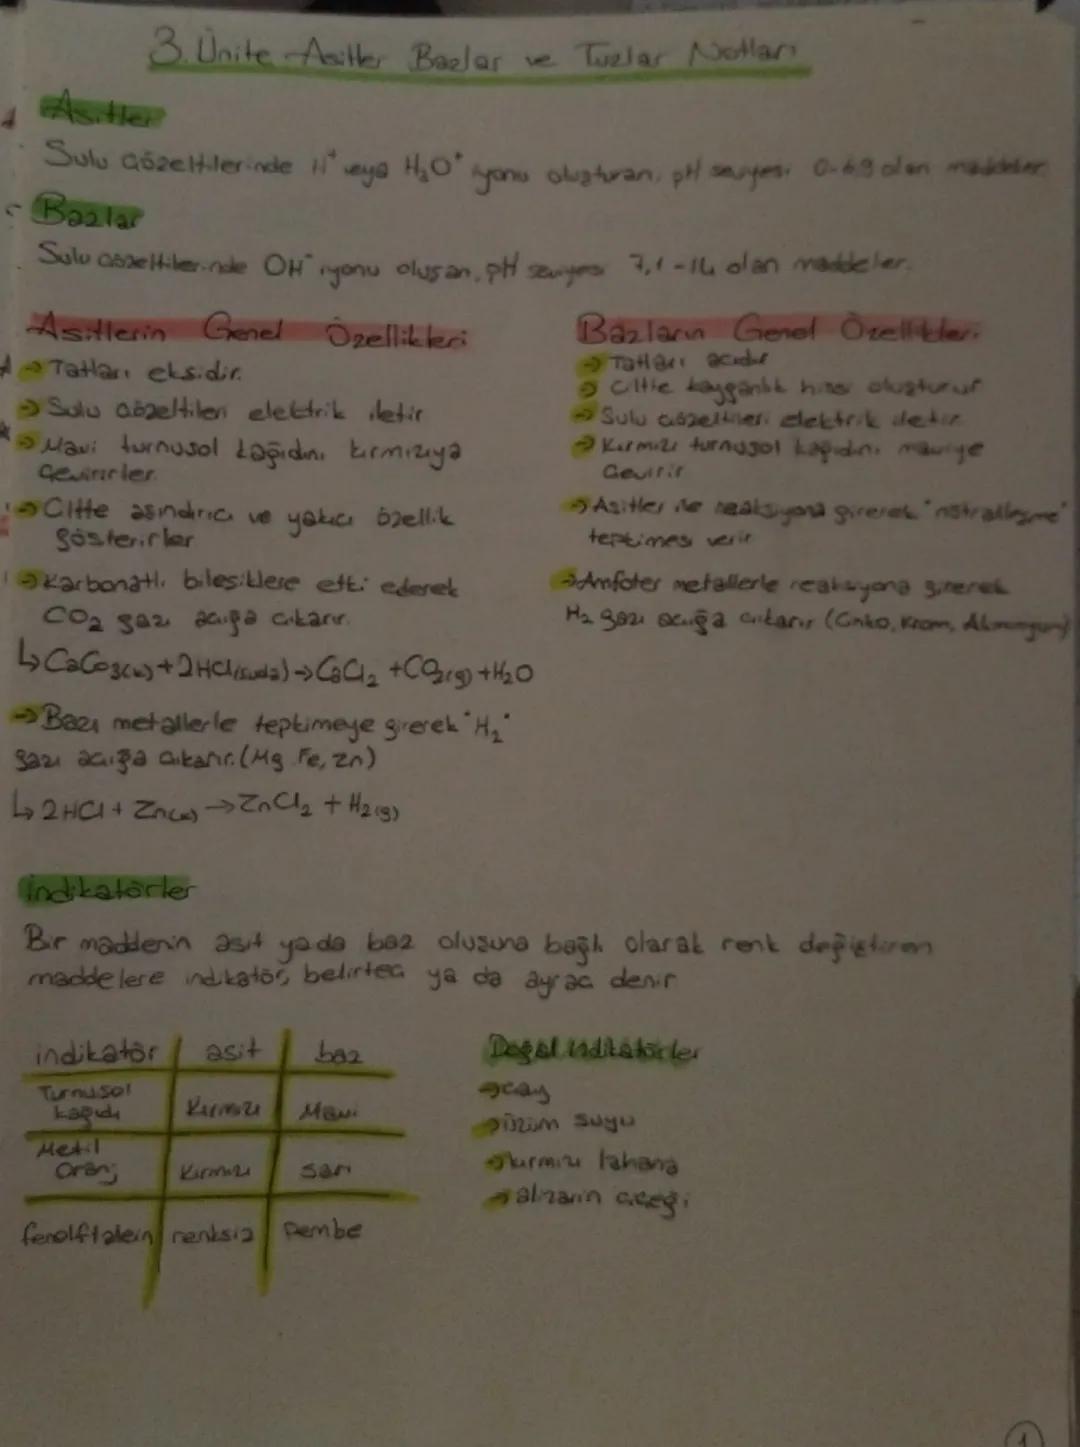 3. Ünite Asitler Bazlar ve Tuzlar Notları
Asitler
Sulu çözeltilerinde H⁺ veya H₃O⁺ iyonu oluşturan, pH seviyesi 0-6,9 olan maddeler
Bazlar
Sulu çözeltilerinde OH⁻ iyonu oluşan, pH seviyesi 7,1-14 olan maddeler.
Asitlerin Genel Özellikleri
→ Tatları ekşidir.
→ Sulu çözeltileri elektrik iletir
→ Mavi turnusol kağıdını kırmızıya
çevirirler.
→ Ciltte aşındırıcı ve yakıcı özellik
gösterirler
→ Karbonatlı bileşiklere etki ederek
CO₂ gazı açığa çıkarır.
↳ CaCO₃(k) + 2HCl(suda) → CaCl₂ + CO₂(g) + H₂O
→ Bazı metallerle tepkimeye girerek "H₂"
gazı açığa çıkarır. (Mg, Fe, Zn)
↳ 2HCl + Zn(k) → ZnCl₂ + H₂(g)
Bazların Genel Özellikleri
→ Tatları acıdır
→ Ciltte kayganlık hissi oluşturur
→ Sulu çözeltileri elektrik iletir
→ Kırmızı turnusol kağıdını maviye
çevirir
→ Asitler ile reaksiyona girerek "nötralleşme"
tepkimesi verir
→ Amfoter metallerle reaksiyona girerek
H₂ gazı açığa çıkarır (Çinko, Krom, Alüminyum)
indikatörler
Bir maddenin asit yada baz oluşuna bağlı olarak renk değiştiren
maddelere indikatör, belirteç ya da ayraç denir
indikatör asit baz
Turnusol
kağıdı Kırmızı Mavi
Metil
Oranj Kırmızı sarı
fenolftalein renksiz pembe
Doğal indikatörler
→ çay
→ üzüm suyu
→ kırmızı lahana
→ alizarin çiçeği
1